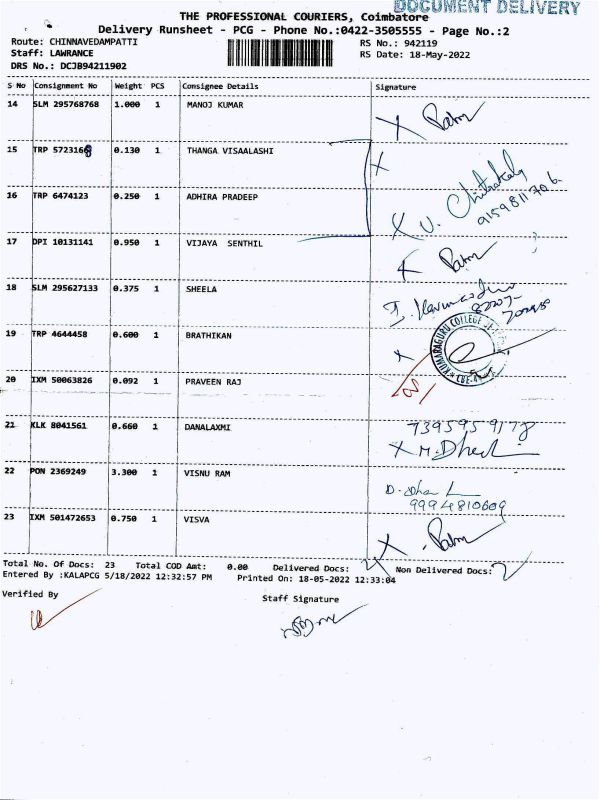 DOCUMENT DELIVERY
THE PROFESSIONAL COURIERS, Coimbatore
Delivery Runsheet - PCG - Phone No.:0422-3505555 - Page No.:2
Route: CHINNAVEDAMPATTI RS No.: 942119
Staff: LAWRANCE RS Date: 18-May-2022
DRS No.: DCJB94211902
S No Consignment No Weight PCS Consignee Details Signature
14 SLM 295768768 1.000 1 MANOJ KUMAR
15 TRP 572316 0.130 1 THANGA VISAALASHI
16 TRP 6474123 0.250 1 ADHIRA PRADEEP
9159811706
17 DPI 10131141 0.950 1 VIJAYA SENTHIL
18 SLM 295627133 0.375 1 SHEELA
19 TRP 4644458 0.600 1 BRATHIKAN
KUMARAGURU COLLEGE
20 IXM 50063826 0.092 1 PRAVEEN RAJ
21 KLK 8041561 0.660 1 DANALAXMI 7395959178
22 PON 2369249 3.300 1 VISNU RAM
9994810609
23 IXM 501472653 0.750 1 VISVA
Total No. Of Docs: 23 Total COD Amt: 0.00 Delivered Docs: Non Delivered Docs:
Entered By :KALAPCG 5/18/2022 12:32:57 PM Printed On: 18-05-2022 12:33:04
Verified By Staff Signature